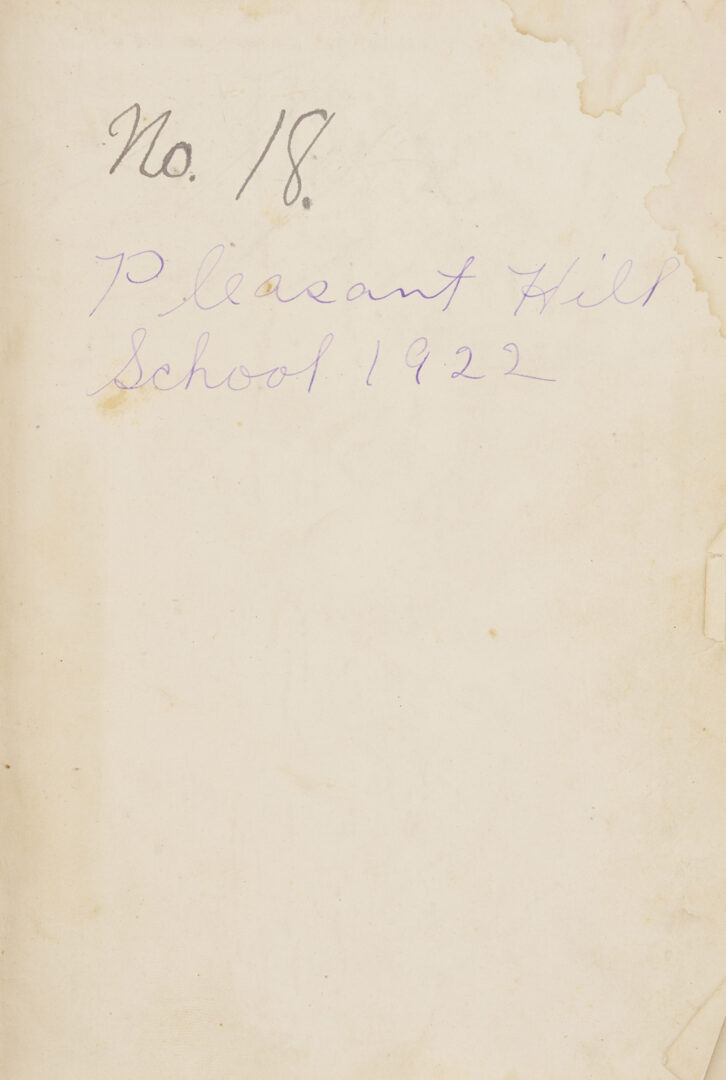 No. 18.
Pleasant Hill
School 1922